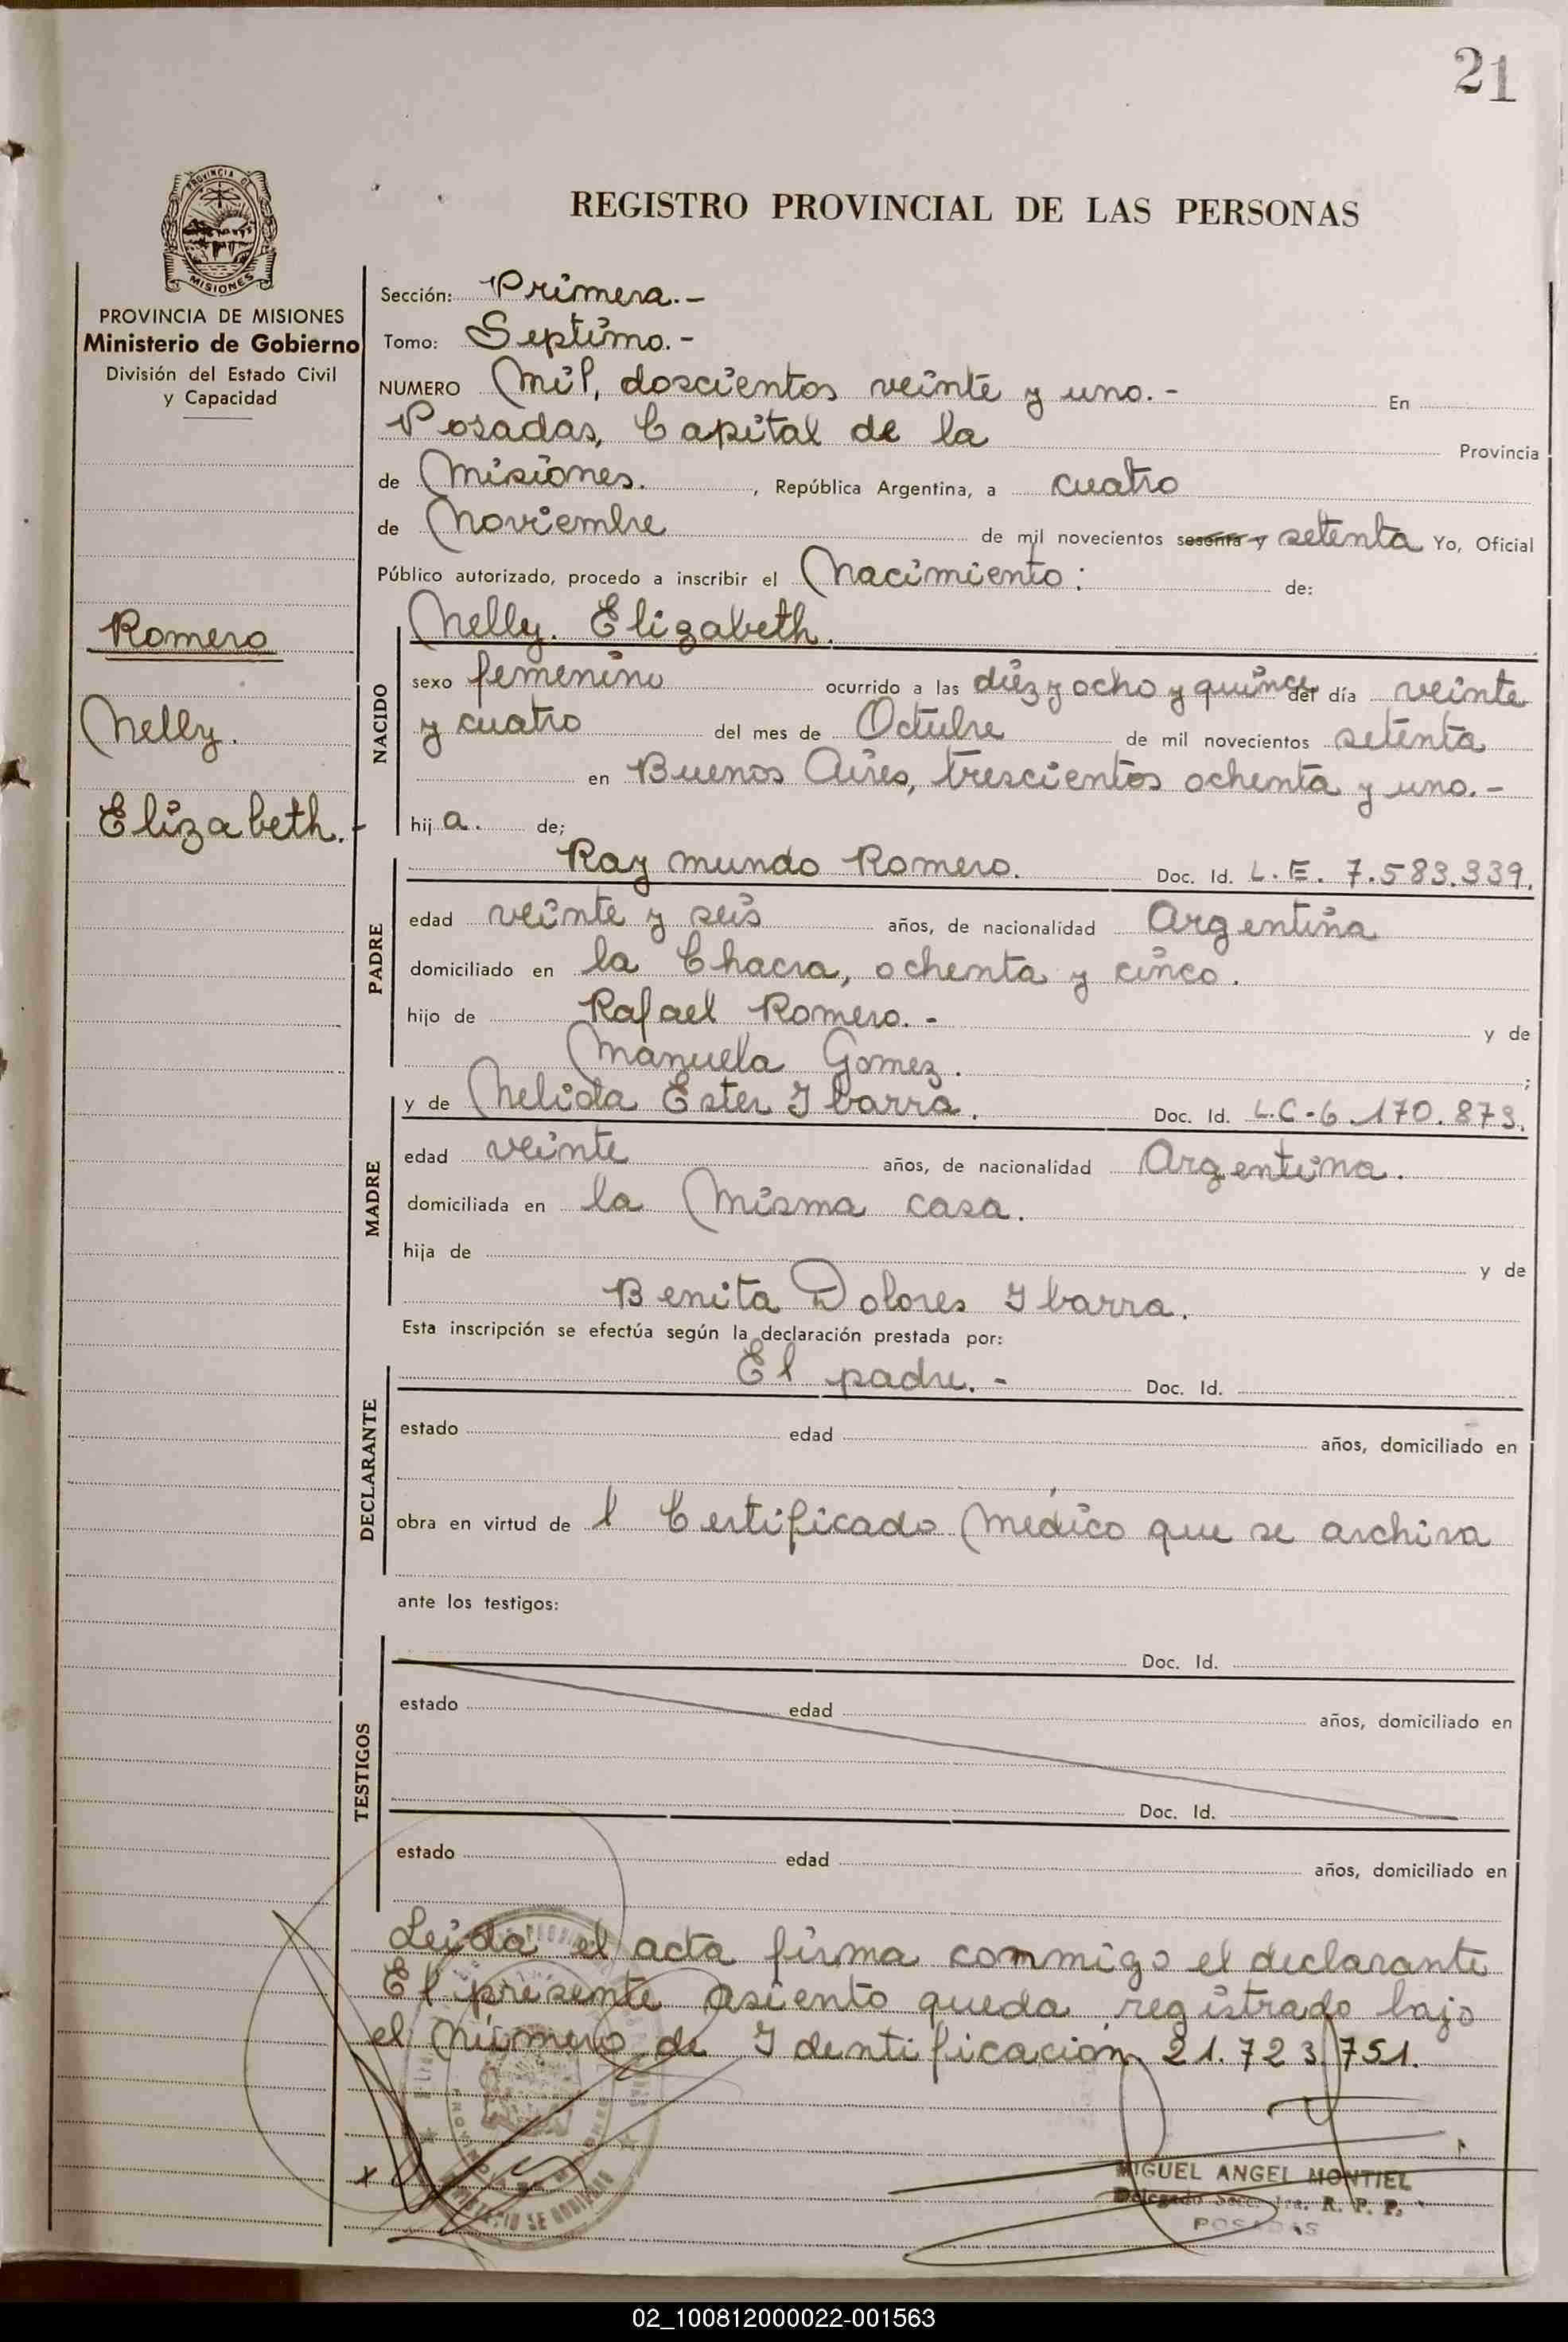 21
PROVINCIA DE
MISIONES
REGISTRO PROVINCIAL DE LAS PERSONAS
PROVINCIA DE MISIONES
Ministerio de Gobierno
División del Estado Civil
y Capacidad
Romero
Nelly.
Elizabeth.-
Sección: Primera.-
Tomo: Septimo.-
NUMERO Mil, doscientos veinte y uno.- En
Posadas, Capital de la Provincia
de Misiones. , República Argentina, a cuatro
de Noviembre de mil novecientos sesenta y setenta Yo, Oficial
Público autorizado, procedo a inscribir el Nacimiento: de:
Nelly. Elizabeth.
NACIDO
sexo femenino ocurrido a las diez y ocho y quince del día veinte
y cuatro del mes de Octubre de mil novecientos setenta
en Buenos Aires, trescientos ochenta y uno.-
hij a. de;
Raymundo Romero. Doc. Id. L.E. 7.583.339.
PADRE
edad veinte y seis años, de nacionalidad Argentina
domiciliado en la Chacra, ochenta y cinco.
hijo de Rafael Romero.- y de
Manuela Gomez. ;
y de Nelida Ester Ibarra. Doc. Id. L.C-6.170.873.
MADRE
edad veinte años, de nacionalidad Argentina.
domiciliada en la Misma casa.
hija de y de
Benita Dolores Ibarra.
Esta inscripción se efectúa según la declaración prestada por:
El padre.- Doc. Id.
DECLARANTE
estado edad años, domiciliado en
obra en virtud de l Certificado Médico que se archiva
ante los testigos:
Doc. Id.
TESTIGOS
estado edad años, domiciliado en
Doc. Id.
estado edad años, domiciliado en
Leida el acta firma conmigo el declarante
El presente asiento queda registrado bajo
el Número de Identificación 21.723.751.
MIGUEL ANGEL MONTIEL
Delegado Secc. 1ra. R. P. P.
POSADAS
02_100812000022-001563